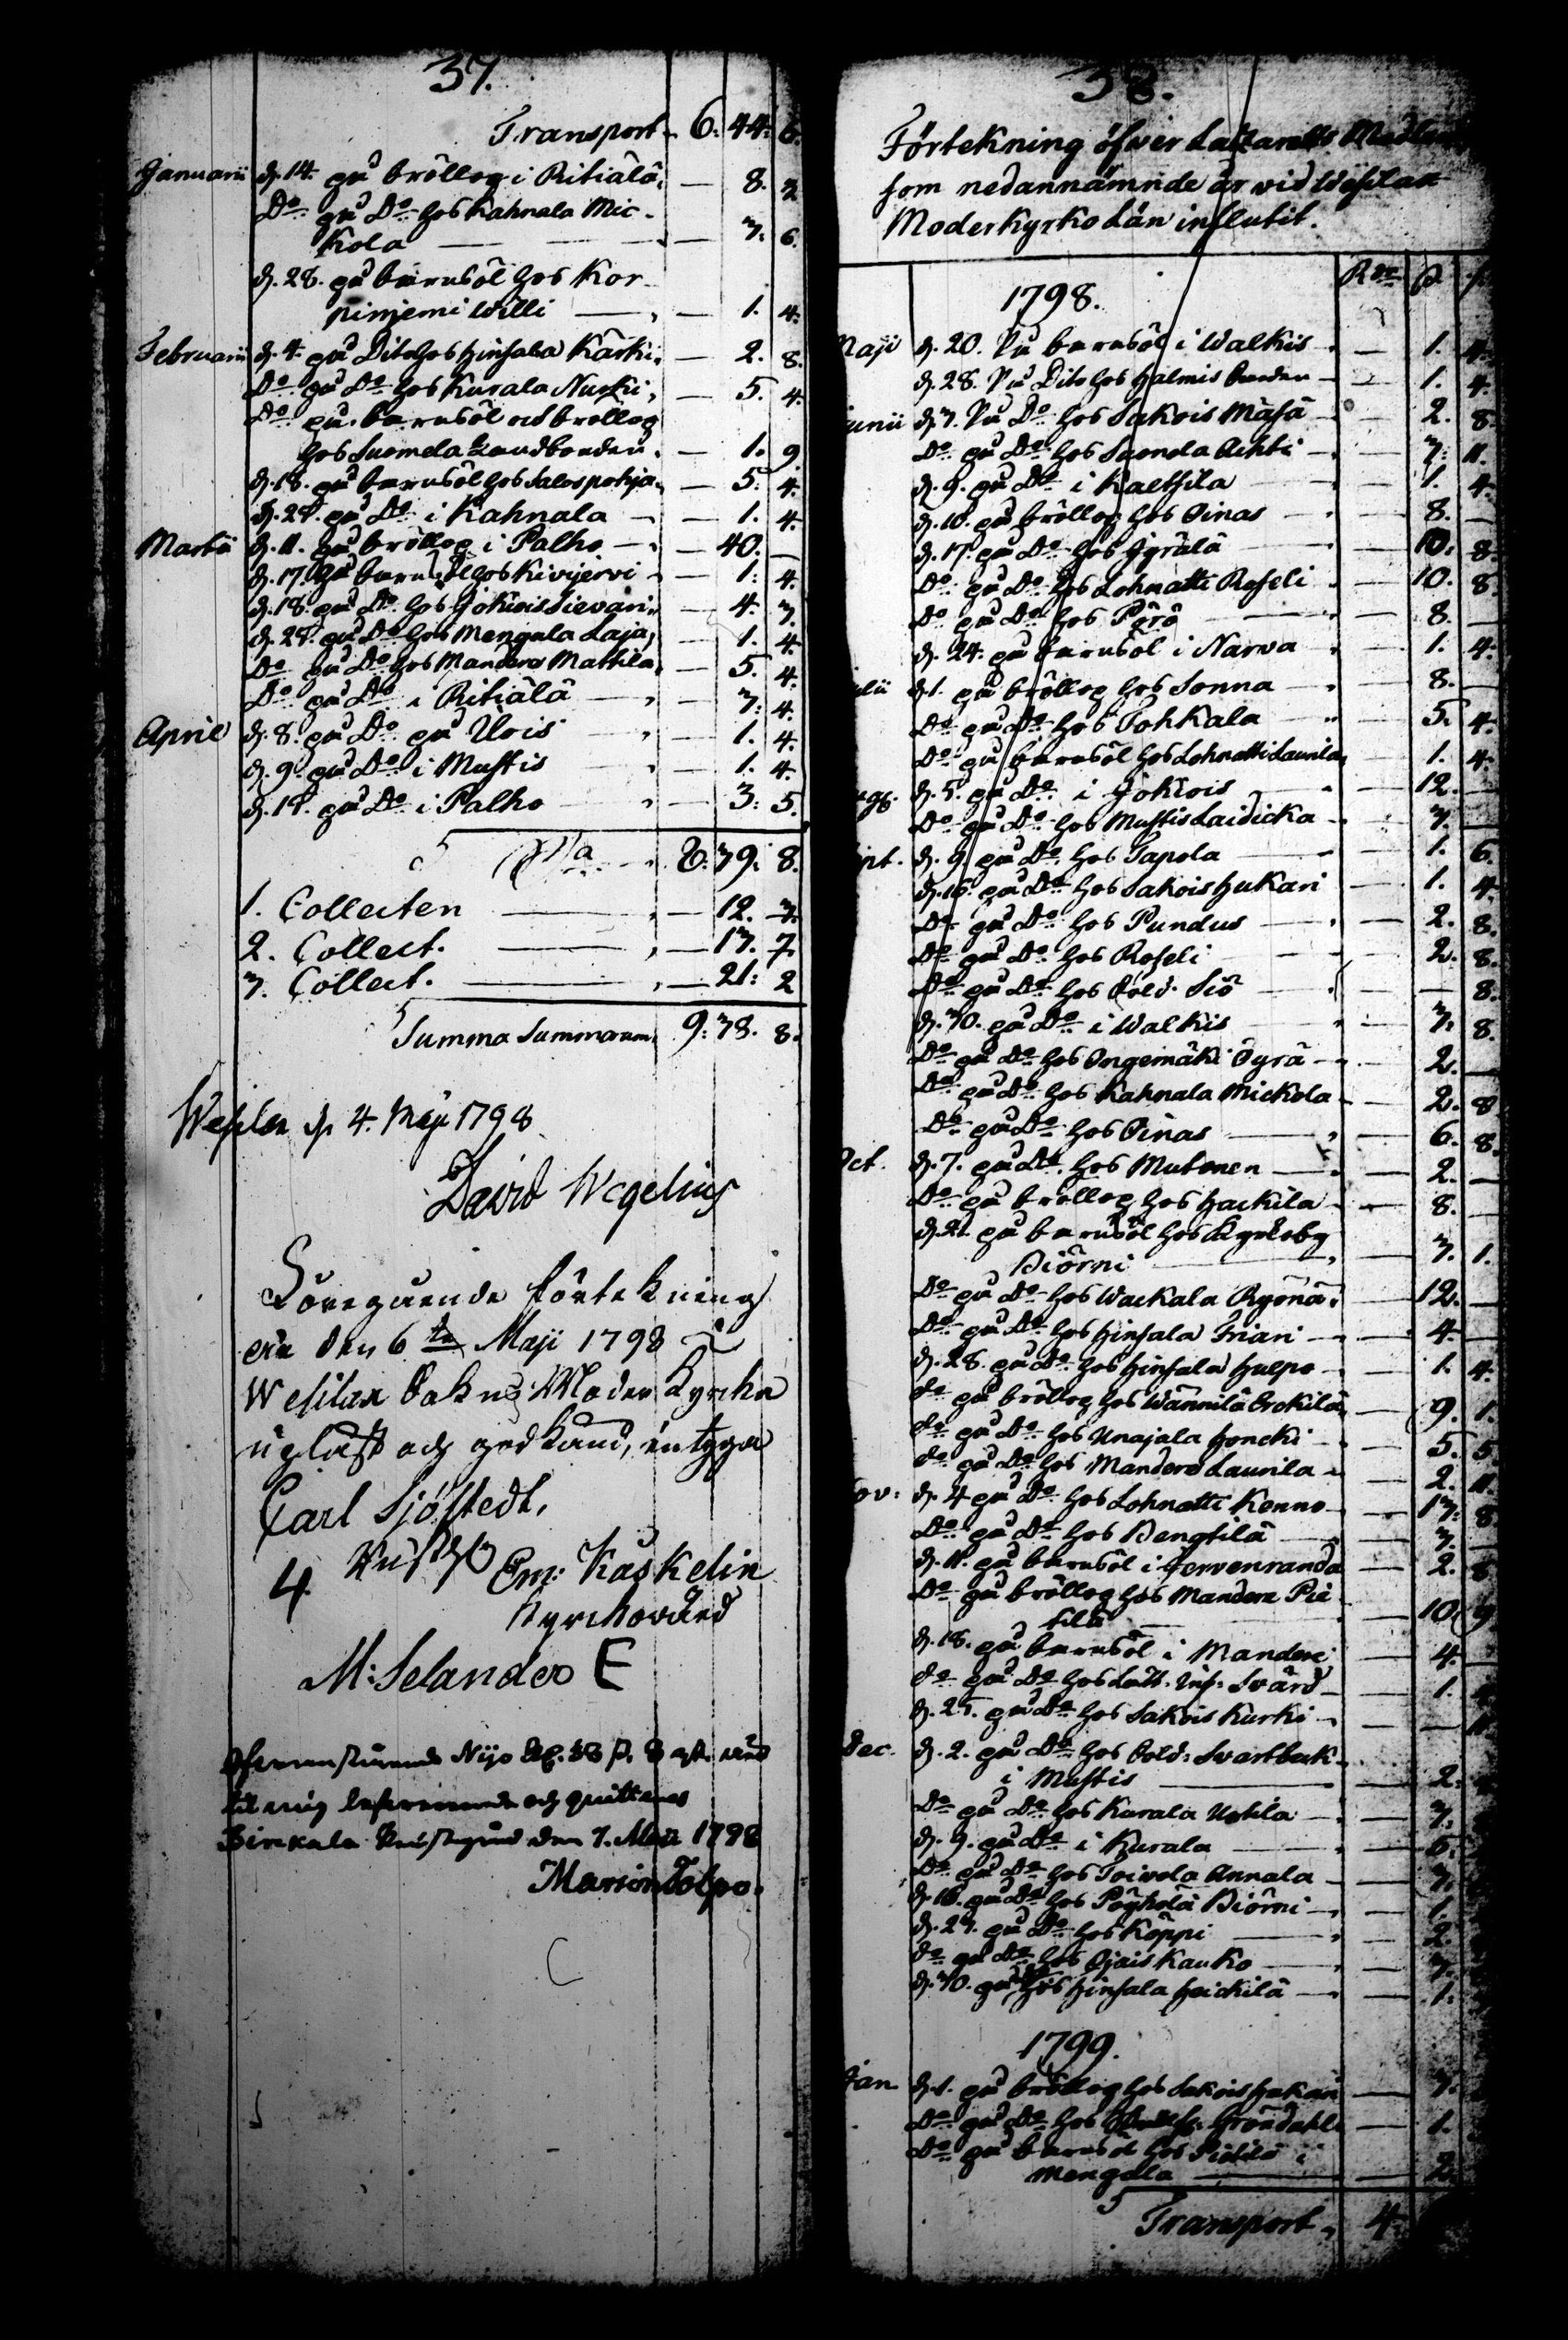 37.
Transport 6. 44. 6.
Januarii d. 14. på bröllop i Ritiälä, — 8. 3
Do på Do hos Kahnala Mic-
kola — — 3. 6.
d. 28. på barnsöl hos Kor-
pinjemi Willi — 1. 4.
Februarii d. 4. på Dito hos Hinsala Kärki, — 2. 8.
Do på Do hos Kurala Nuoli, — 5. 4.
Do på barnsöl och bröllop
hos Suomela Landbonden, — 1. 9
d. 18. på barnsöl hos Salospohja, — 5. 4.
d. 25. på Do i Kahnala — 1. 4.
Martii d. 11. på bröllop i Palho — 40. —
d. 17. på barnsöl hos Kivijervi — 1. 4.
d. 18. på Do hos Jokiois Sievari, — 4. 3.
d. 25. på Do hos Mengala Laja, — 1. 4.
Do på Do hos Mandere Mattila, — 5. 4.
Do på Do i Ritiälä — 3. 4.
April d. 8. på Do på Uois — 1. 4.
d. 9. på Do i Mustis — 1. 4.
d. 15. på Do i Palho — 3. 5.
Sma 8. 39. 8.
1. Collecten — 12. 3.
2. Collect. — 13. 7.
3. Collect. — 21. 2
Summa Summarum 9. 38. 8.
Wesilax d. 4. Maji 1798
David Wegelius
Föregående förtekning
är den 6te Maji 1798 i
Wesilax Sokns Moder Kyrcka
upläst och godkänd, intyga
Carl Sjöstedt.
4.
Em: Kaskelin
Kyrckovärd
M: Selander E
Ofvanstående Nijo
til mig levererade och quitteras
Birkala Prästgård den 7. Maii 1798
Tolpo.
38.
Förtekning öfver Lazaretts Medlen
som nedannämnde år vid Wesilax
Moderkyrko Län influtit.
Rdr ß.
1798.
Maji d. 20. På barnsöl i Walkis — 1. 4.
d. 28. På Dito hos Halmis Bonden — 1. 4.
Junii d. 3. På Do hos Sakois Mäsä — 2. 8.
Do på Do hos Suomela Achti — 3. 11.
d. 9. på Do i Kalthila — 1. 4.
d. 10. på bröllop hos Oinas — 8. —
d. 17. på Do hos Jyrälä — 10. 8.
Do på Do hos Lohnatti Roseli — 10. 8.
Do på Do hos Pärä — 8. —
d. 24. på barnsöl i Narva — 1. 4.
d. 1. på bröllop hos Sonna — 8. —
Do på Do hos Tohkala — 5. 4.
Do på barnsöl hos Lohnatti Laurila, — 1. 4.
d. 5. på Do i Jokiois — 12. —
Do på Do hos Mustis Laidicka — 3. —
d. 9. på Do hos Tapola — 1. 6.
d. 16. på Do hos Sakois Hukari — 1. 4.
Do på Do hos Pundus — 2. 8.
Do på Do hos Roseli — 2. 8.
Do på Do hos Sold. Siö — 8.
d. 30. på Do i Walkis — 3. 8.
Do på Do hos Ongemäki Öyrä — 2. —
Do på Do hos Kahnala Mickola — 2. 8
Do på Do hos Oinas — 6. 8.
Oct. d. 7. på Do hos Mutonen — 2. —
Do på bröllop hos Hackila — 8. —
d. 21. på barnsöl hos Kyrkoby
Biörni — 3. 1.
Do på Do hos Wackala Ryönä, — 12. —
Do på Do hos Hinsala Friari — 4. —
d. 28. på Do hos Hinsala Hulpo — 1. 4.
do på bröllop hos Wännilä Erckilä, — 9. 1.
do på Do hos Unajala Honcki — 5. 5
do på Do hos Mandere Laurila — 2. 11.
Nov: d. 4 på Do hos Lohnatti Konno — 13. 8
Do på Do hos Bengtilä — 3. —
d. 11. på barnsöl i Jervenranda — 2. 8
Do på bröllop hos Mandere Pie-
tilä — 10. 9
d. 18. på barnsöl i Mandere — 4. —
do på Do hos Svärd — 1.
d. 25. på Do hos Sakois Kurki — 11
Dec. d. 2. på Do hos Sold: Svartbeck
i Mustis — 2.
Do på Do hos Kurala Uotila — 3.
d. 9. på Do i Kurala — 5.
Do på Do hos Toivola Annala — 3.
d. 16. på Do hos Pöyhölä Biörni — 1.
d. 23. på Do hos Köppi — 2.
do på Do hos Ojais Kauko — 3.
d. 30. på Do hos Hinsala Heickilä — 1.
1799.
Jan. d. 1. på bröllop hos Sakois Hukari — 3.
Do på Do hos Gröndahl — 1.
Do på barnsöl hos Pietilä i
Mengala — 2.
Transport, 4.